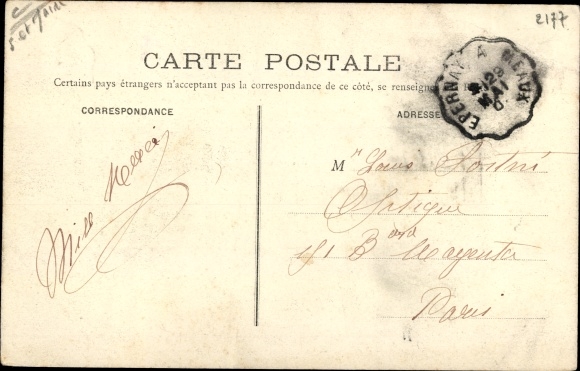 2177
CARTE POSTALE
Certains pays étrangers n'acceptant pas la correspondance de ce côté, se renseigner
CORRESPONDANCE
ADRESSE
EPERNAY A MEAUX
23
MAI
Mille Merci
Mr Louis
Optique
Bard Magenta
Paris